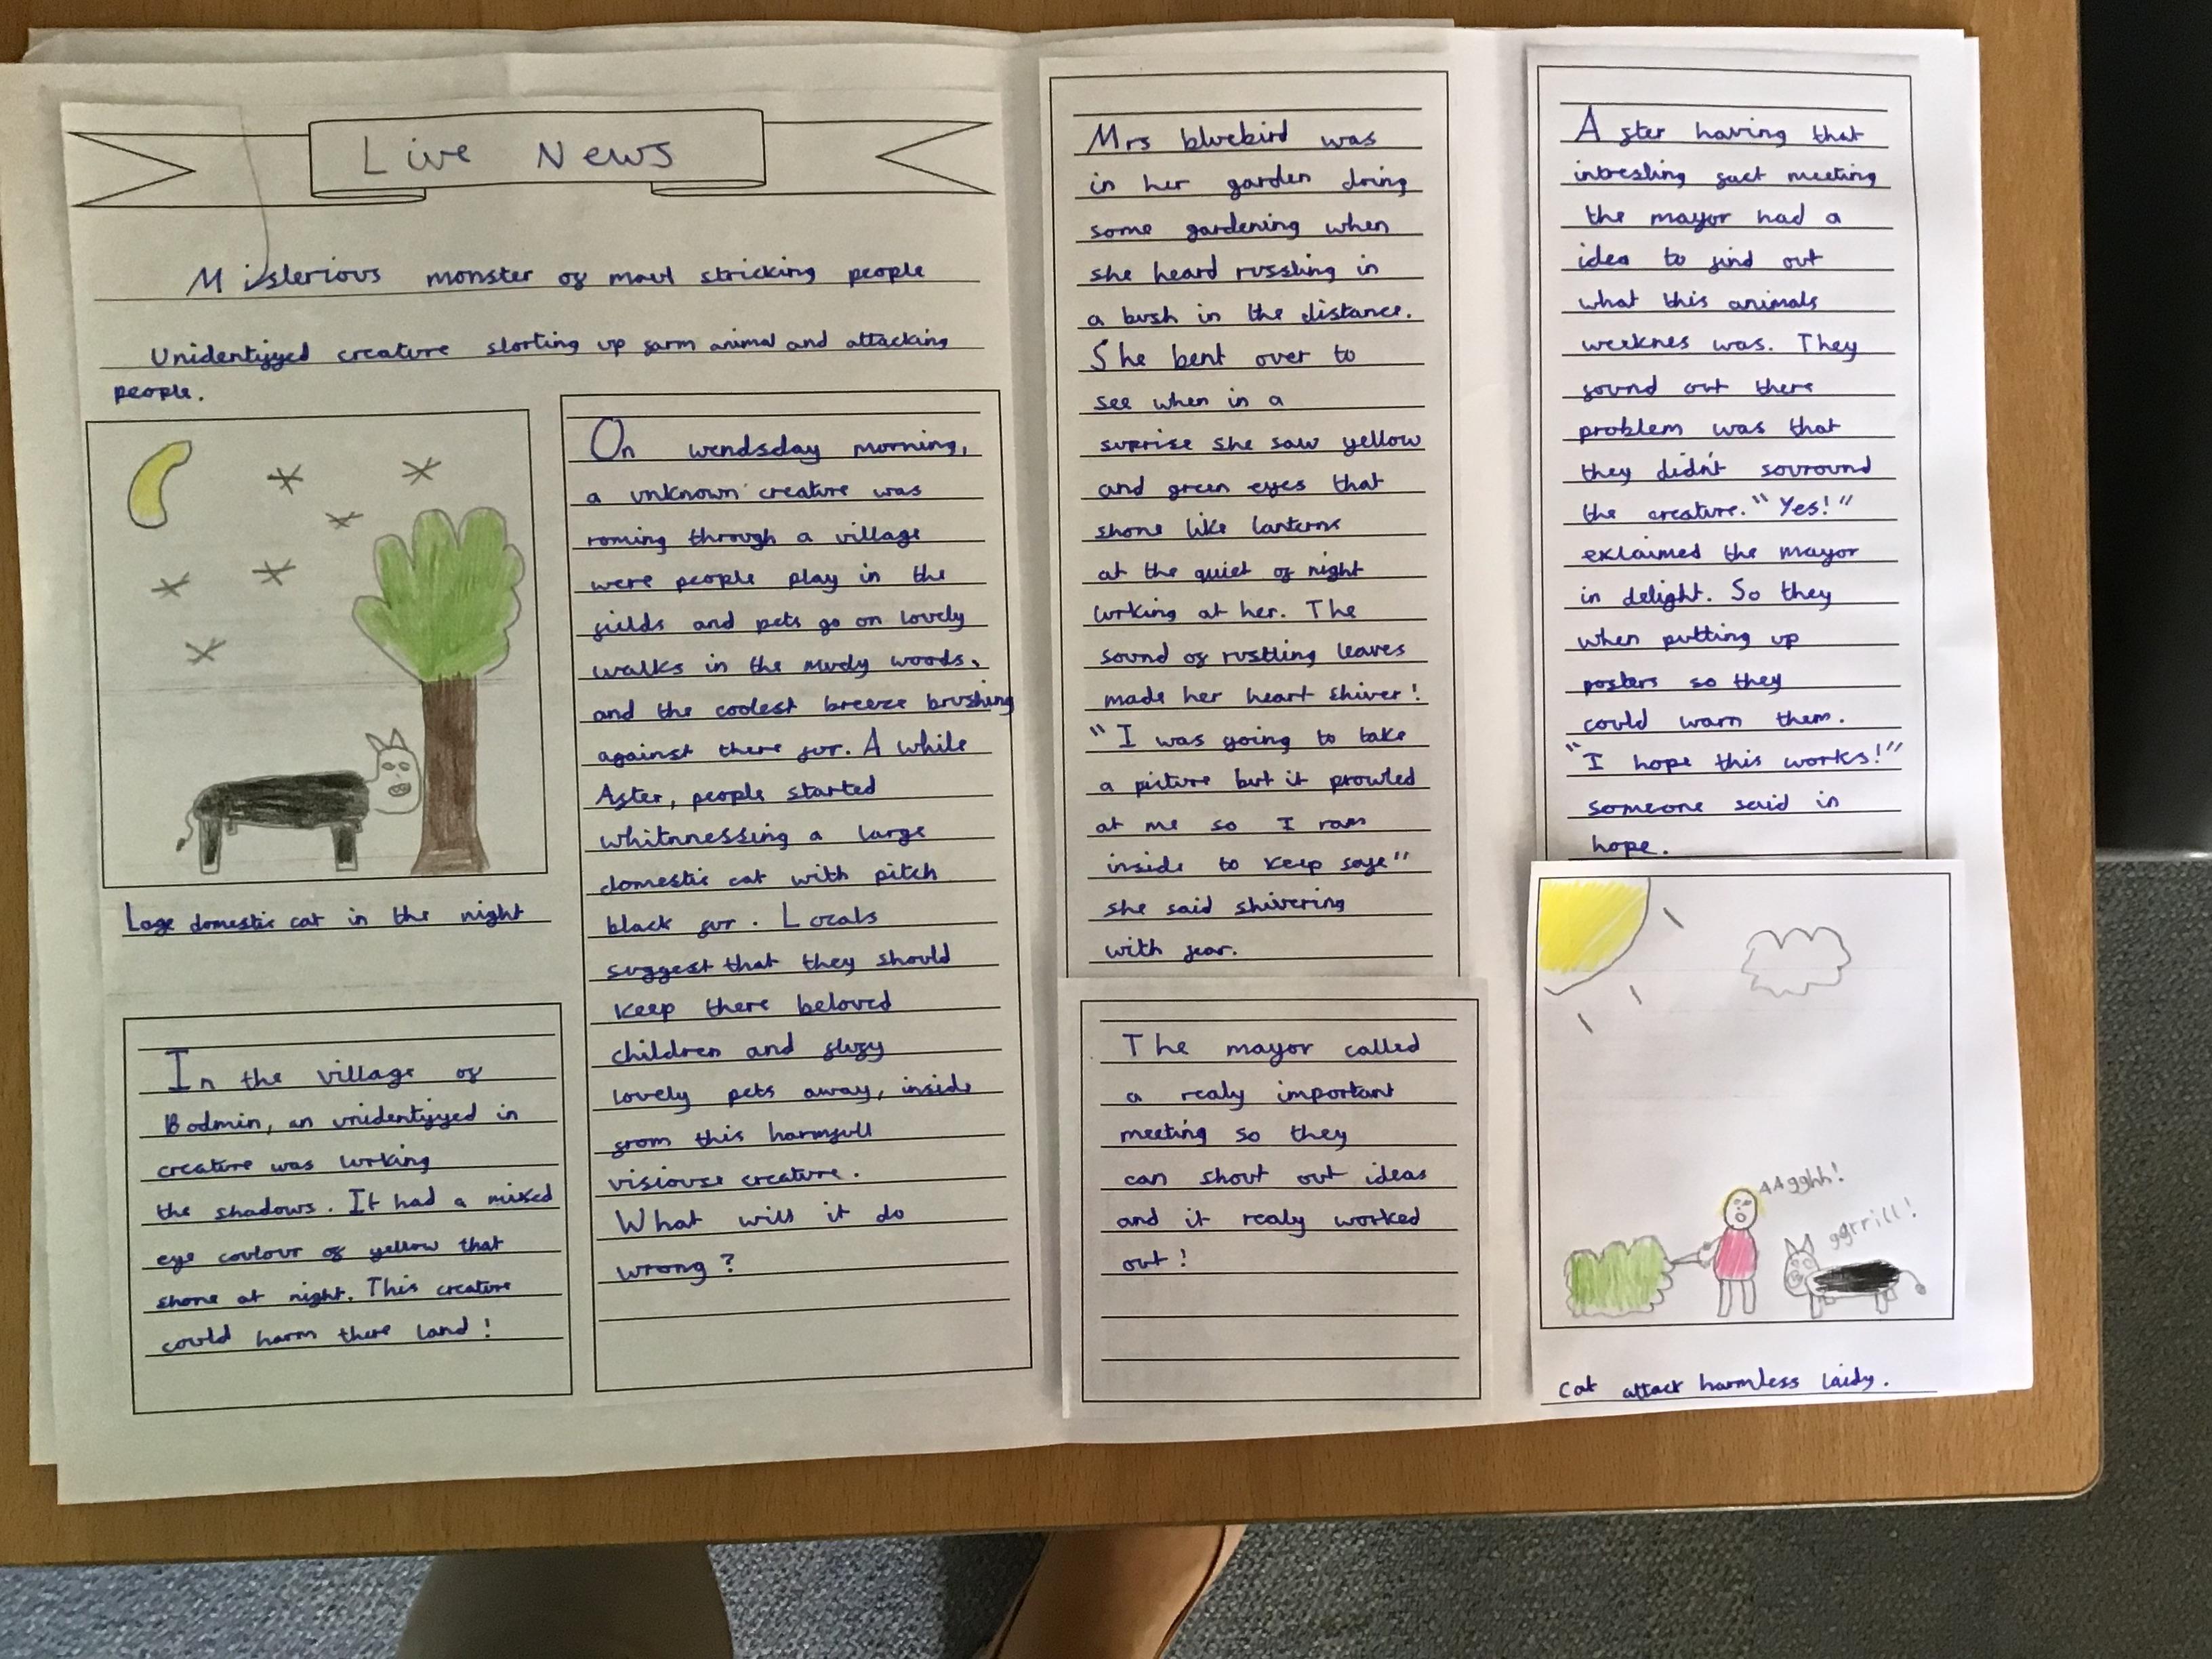 Live News
Misterious monster of maul stricking people
Unidentifyed creature slorting up farm animal and attacking
people.
Lage domestic cat in the night
In the village of
Bodmin, an unidentifyed in
creature was lurking
the shadows. It had a mixed
eye coulour of yellow that
shone at night. This creature
could harm there land!
On wendsday morning,
a unknown creature was
roming through a village
were people play in the
fields and pets go on lovely
walks in the mudy woods,
and the coolest breeze brushing
against there fur. A while
After, people started
whitnnessing a large
domestic cat with pitch
black fur. Locals
suggest that they should
keep there beloved
children and
lovely pets away, inside
from this harmfull
visiouse creature.
What will it do
wrong?
Mrs bluebird was
in her garden doing
some gardening when
she heard russling in
a bush in the distance.
She bent over to
see when in a
suprise she saw yellow
and green eyes that
shone like lanterns
at the quiet of night
lurking at her. The
sound of rustling leaves
made her heart shiver!
"I was going to take
a picture but it prowled
at me so I ran
inside to keep safe"
she said shivering
with fear.
The mayor called
a realy important
meeting so they
can shout out ideas
and it realy worked
out!
After having that
intresting fact meeting
the mayor had a
idea to find out
what this animals
weeknes was. They
found out there
problem was that
they didn't souround
the creature. "Yes!"
exclaimed the mayor
in delight. So they
when putting up
posters so they
could warn them.
"I hope this works!"
someone said in
hope.
AAgghh!
ggrrill!
cat attack harmless laidy.